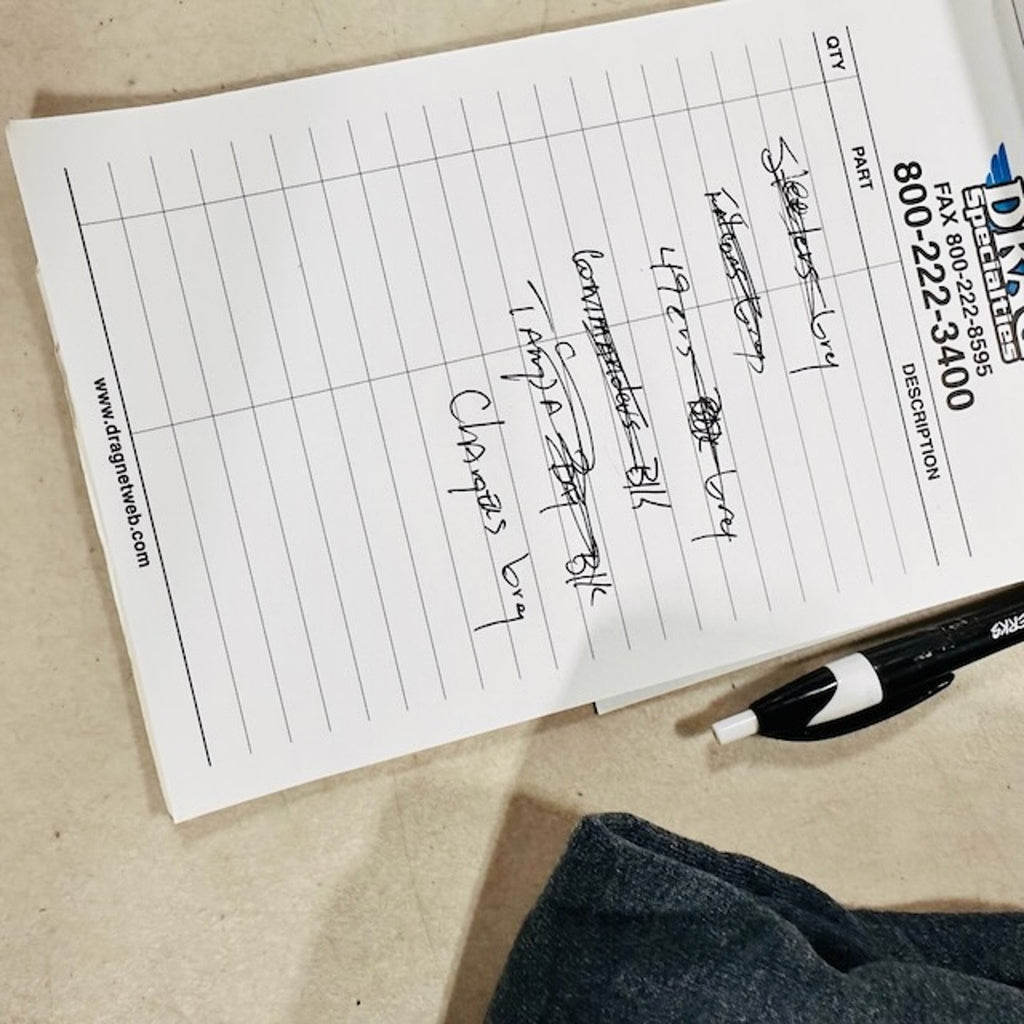 Specialties
FAX 800-222-8595
800-222-3400
QTY PART DESCRIPTION
Steelers - Grey
Falcons Gray
49ers - Grey
Commanders - Blk
TAmpA BAy Blk
ChArgers Gray
www.dragnetweb.com